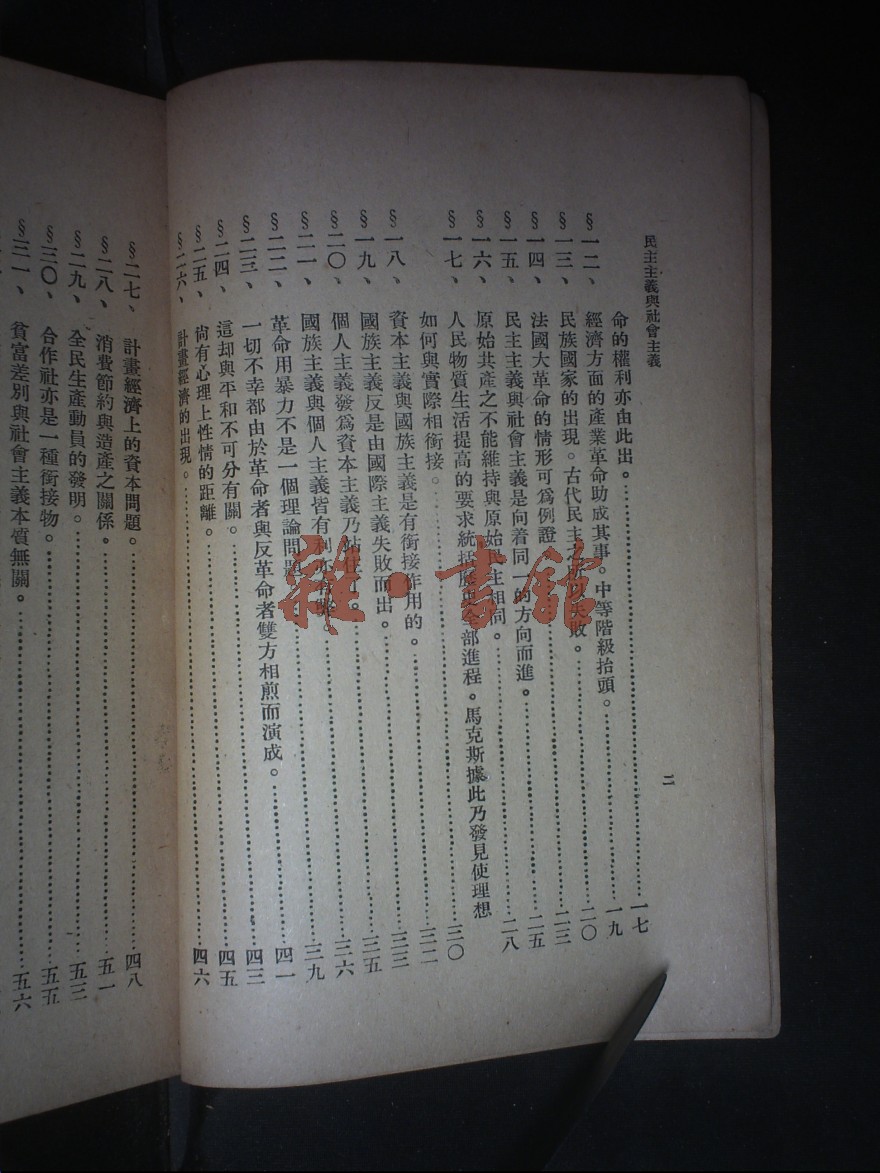 民主主義與社會主義
二
命的權利亦由此出。……一七
§一二、經濟方面的產業革命助成其事。中等階級抬頭。……一九
§一三、民族國家的出現。古代民主之所以失敗。……二〇
§一四、法國大革命的情形可爲例證……二三
§一五、民主主義與社會主義是向着同一的方向而進。……二五
§一六、原始共產之不能維持與原始民主相同。……二八
§一七、人民物質生活提高的要求統括歷史全部進程。馬克斯據此乃發見使理想
如何與實際相銜接。……三〇
§一八、資本主義與國族主義是有銜接作用的。……三二
§一九、國族主義反是由國際主義失敗而出。……三三
§二〇、個人主義發爲資本主義乃站住了。……三五
§二一、國族主義與個人主義皆有利亦有弊。……三六
§二二、革命用暴力不是一個理論問題……三九
§二三、一切不幸都由於革命者與反革命者雙方相煎而演成。……四一
§二四、這却與平和不可分有關。……四三
§二五、尚有心理上性情的距離。……四五
§二六、計畫經濟的出現。……四六
§二七、計畫經濟上的資本問題。……四八
§二八、消費節約與造產之關係。……五一
§二九、全民生產動員的發明。……五三
§三〇、合作社亦是一種銜接物。……五五
§三一、貧富差別與社會主義本質無關。……五六
雜·書館